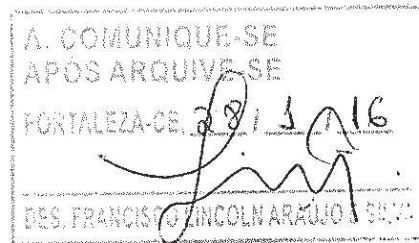 A. COMUNIQUE-SE
APÓS ARQUIVE-SE
FORTALEZA-CE, 28 / 1 / 16
DES. FRANCISCO LINCOLN ARAÚJO E SILVA